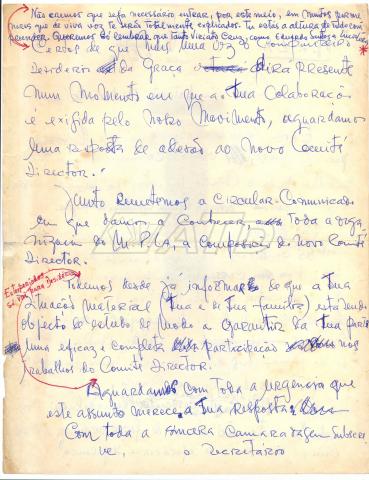 Não cremos que seja necessário entrar, por este meio, em assuntos porme
nores que de viva voz te serão totalmente explicados. Tu estás a altura de tudo com
preender. Queremos só lembrar que tanto Viriato Cruz, como Eduardo Santos e Lucio Lara
Certos de que mais uma vez o companheiro
Desidério da Graça dirá presente
num momento em que a tua colaboração
é exigida pelo nosso movimento, aguardamos
uma resposta de adesão ao novo Comité
Director.
Junto remetemos a circular-comunicado
em que damos a conhecer a toda a orga
nização do M.P.L.A, a composição do novo Comité
Director.
Podemos desde já informar-te que a tua
situação material (tua e de tua família) está sendo
objecto de estudo de modo a garantir da tua parte
uma eficaz e completa participação nos
trabalhos do Comité Director.
Aguardamos com toda a urgência que
este assunto merece, a tua resposta.
Com toda a sincera camaradagem subscre
ve,
o secretário